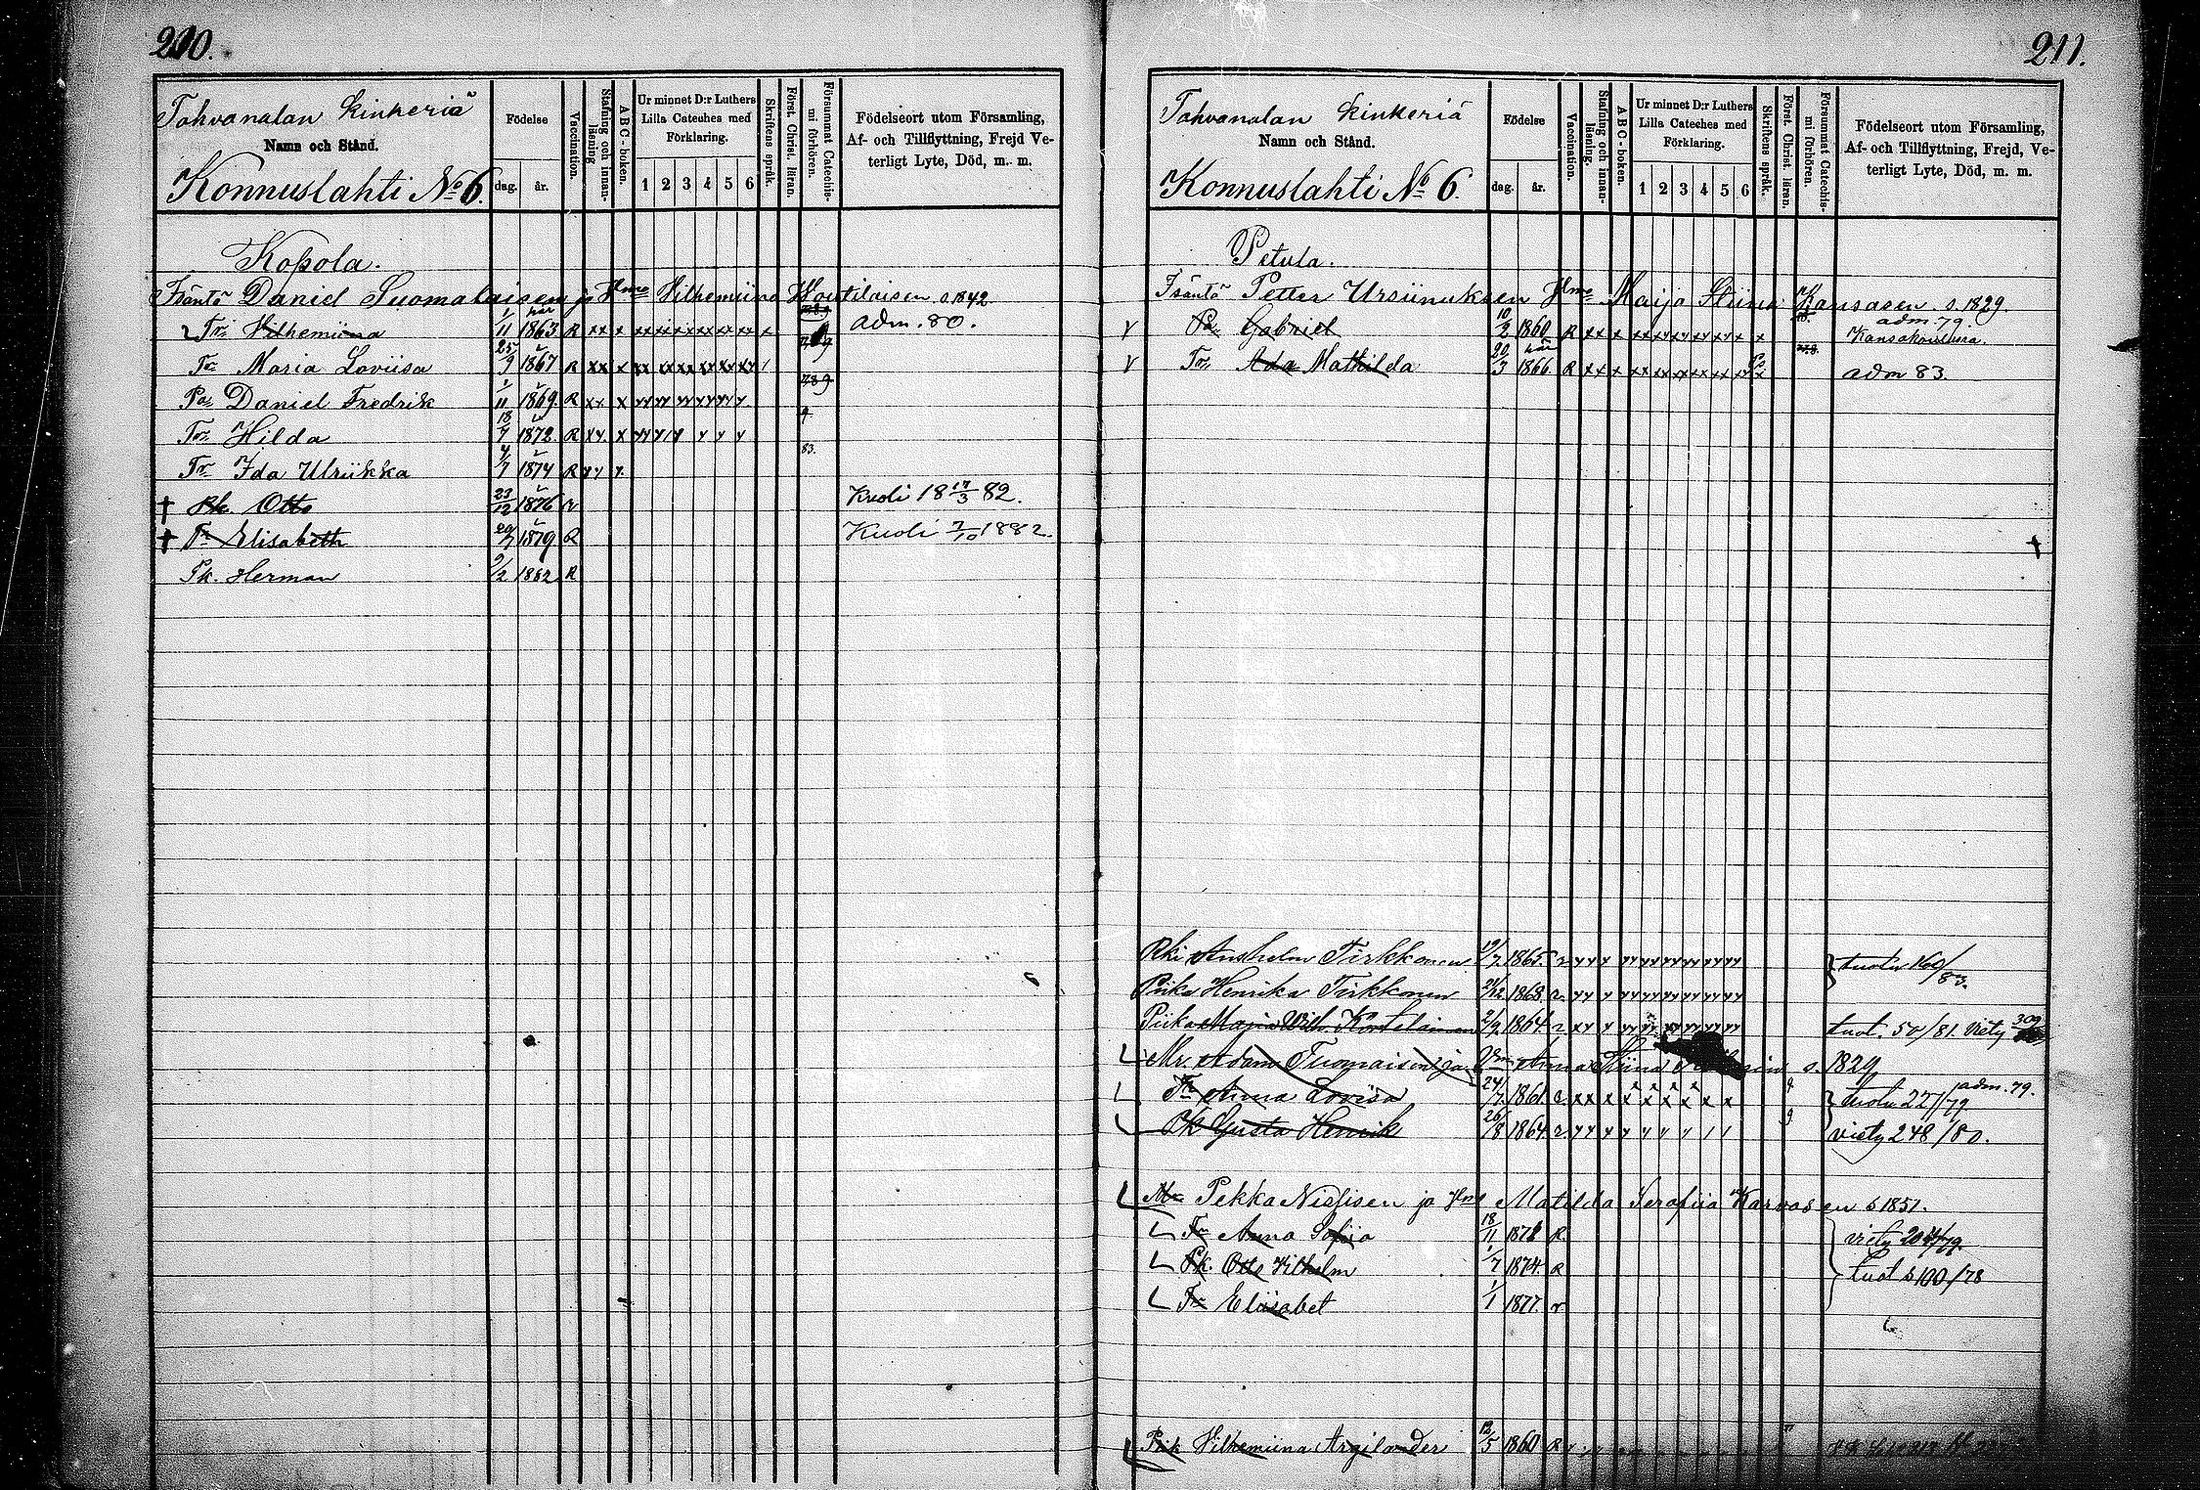 210.
Tahvanalan kinkeriä
Namn och Stånd.
Konnuslahti No 6.
Födelse
dag. år.
Vaccination.
Stafning och innanläsning
ABC-boken.
Ur minnet D:r Luthers
Lilla Cateches med
Förklaring.
1 2 3 4 5 6
Skriftens språk.
Först. Christ. läran.
Försummat Catechismi förhören.
Födelseort utom Församling,
Af- och Tillflyttning, Frejd Veterligt Lyte, Död, m. m.
Kopola.
Isäntä Daniel Suomalaisen ja Hmo Vilhemiina Voutilaisen s. 1842
Tr. Vilhemiina 1/11 1863 R xx x adm. 80.
Tr. Maria Loviisa 25/9 1867 R xx x
Po. Daniel Fredrik 1/11 1869 R xx x
Tr. Hilda 18/7 1872 R
Tr. Ida Ulriikka 4/7 1874 R
† Pk. Otto 23/12 1876 r Kuoli 18 17/3 82.
† Tr. Elisabeth 20/7 1879 R Kuoli 7/10 1882.
Pk. Herman 9/2 1882 R
211.
Tahvanalan kinkeriä
Namn och Stånd.
Konnuslahti No 6.
Födelse
dag. år.
Vaccination.
Stafning och innanläsning.
ABC-boken.
Ur minnet D:r Luthers
Lilla Cateches med
Förklaring.
1 2 3 4 5 6
Skriftens språk.
Först. Christ. läran.
Försummat Catechismi förhören.
Födelseort utom Församling,
Af- och Tillflyttning, Frejd, Veterligt Lyte, Död, m. m.
Petula.
Isäntä Petter Ursiinuksen Hmo Maija Stiina Kansasen s. 1829.
Po. Gabriel 10/2 1860 R xx x adm. 79. Kansakoulussa.
Tr. Ada Mathilda 20/3 1866 R xx x adm 83.
Rki Anshelm Tirkkonen 19/7 1865
Piika Henrika Tirkkonen 1868
Piika Maria Vilh. Kortelainen 2/9 1864 tuot. 50/81. viety 309
Mr. Adam Tuomaisen ja Vmo Anna Stiina s. 1829
Tr Anna Lovisa 24/7 1861 tuotu 227/79 adm. 79.
Pk Gusta Henrik 26/8 1864 viety 248/80.
Mr Pekka Nissisen ja Hmo Matilda Serafiia Karvosen s 1851.
Tr Anna Sofiia 18/11 1872 R viety 204/79
Pk. Otto Vilhelm 1/7 1874 R tuot s 100/78
Tr Eliisabet 1/1 1877 r
Piik Vilhemiina Argilander 12/5 1860 R